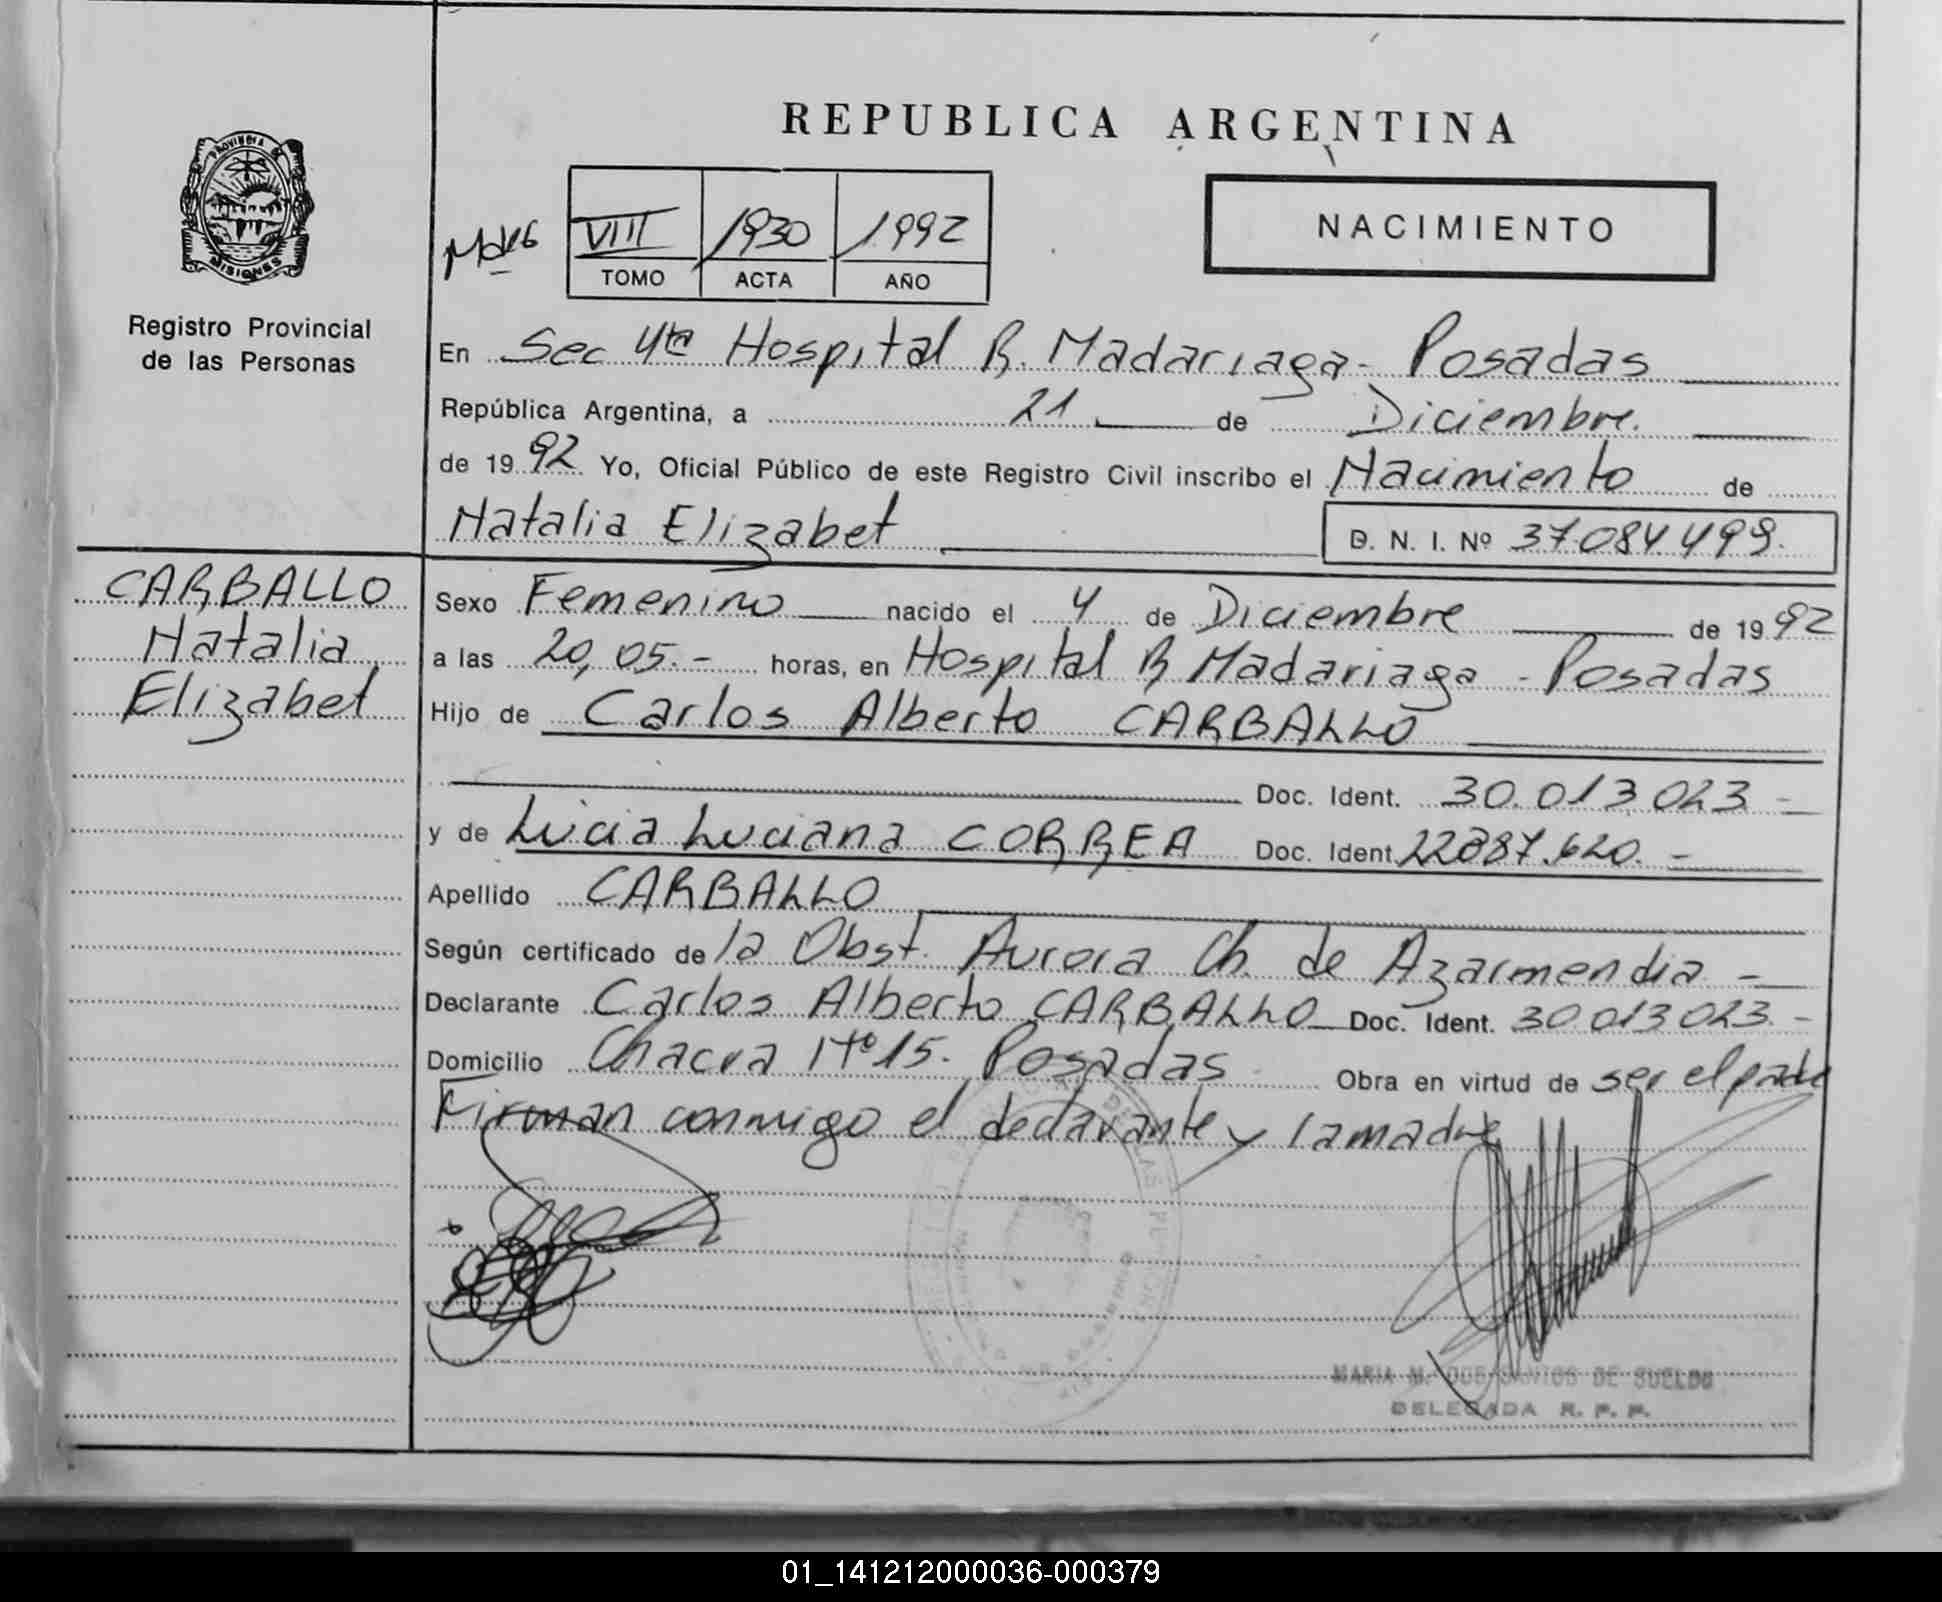 REPUBLICA ARGENTINA
PROVINCIA DE
MISIONES
Registro Provincial
de las Personas
VIII 1930 1992
TOMO ACTA AÑO
NACIMIENTO
En Sec 4ta Hospital R. Madariaga - Posadas
República Argentina, a 21 de Diciembre.
de 1992. Yo, Oficial Público de este Registro Civil inscribo el Nacimiento de
Natalia Elizabet D. N. I. Nº 37.084.499.
CARBALLO
Natalia
Elizabet
Sexo Femenino nacido el 4 de Diciembre de 1992
a las 20,05.- horas, en Hospital R Madariaga - Posadas
Hijo de Carlos Alberto CARBALLO
Doc. Ident. 30.013.023 -
y de Lucia Luciana CORREA Doc. Ident. 22887.620. -
Apellido CARBALLO
Según certificado de la Obst. Aurora Ch. de Azarmendia -
Declarante Carlos Alberto CARBALLO Doc. Ident. 30 013 023. -
Domicilio Chacra Nº 15. Posadas Obra en virtud de ser el padre
Firman conmigo el declarante y la madre
MARIA M. DOS SANTOS DE SUELDO
DELEGADA R. P. P.
01_141212000036-000379